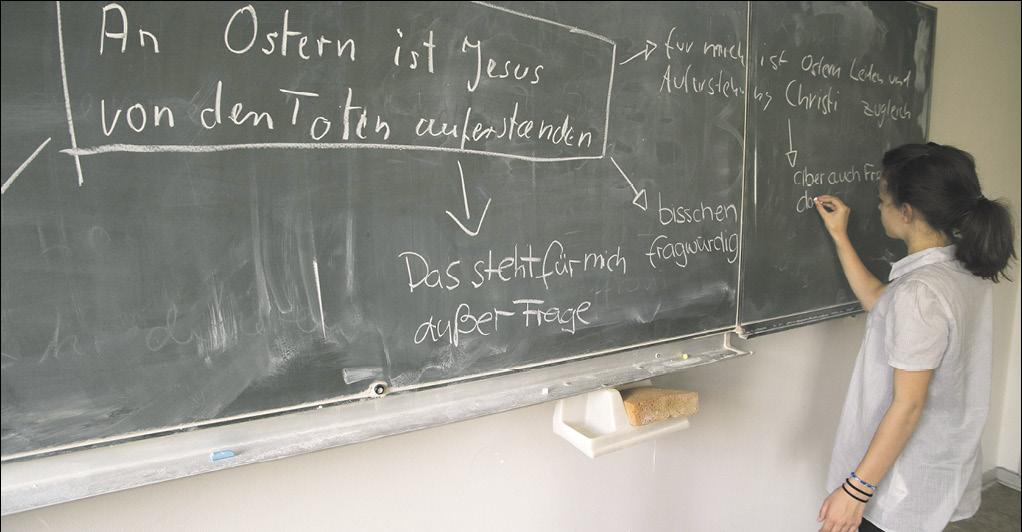 An Ostern ist Jesus
von den Toten auferstanden
für mich ist Ostern Leiden und
Auferstehung Christi zugleich
aber auch
bisschen
fragwürdig
Das steht für mich
außer Frage